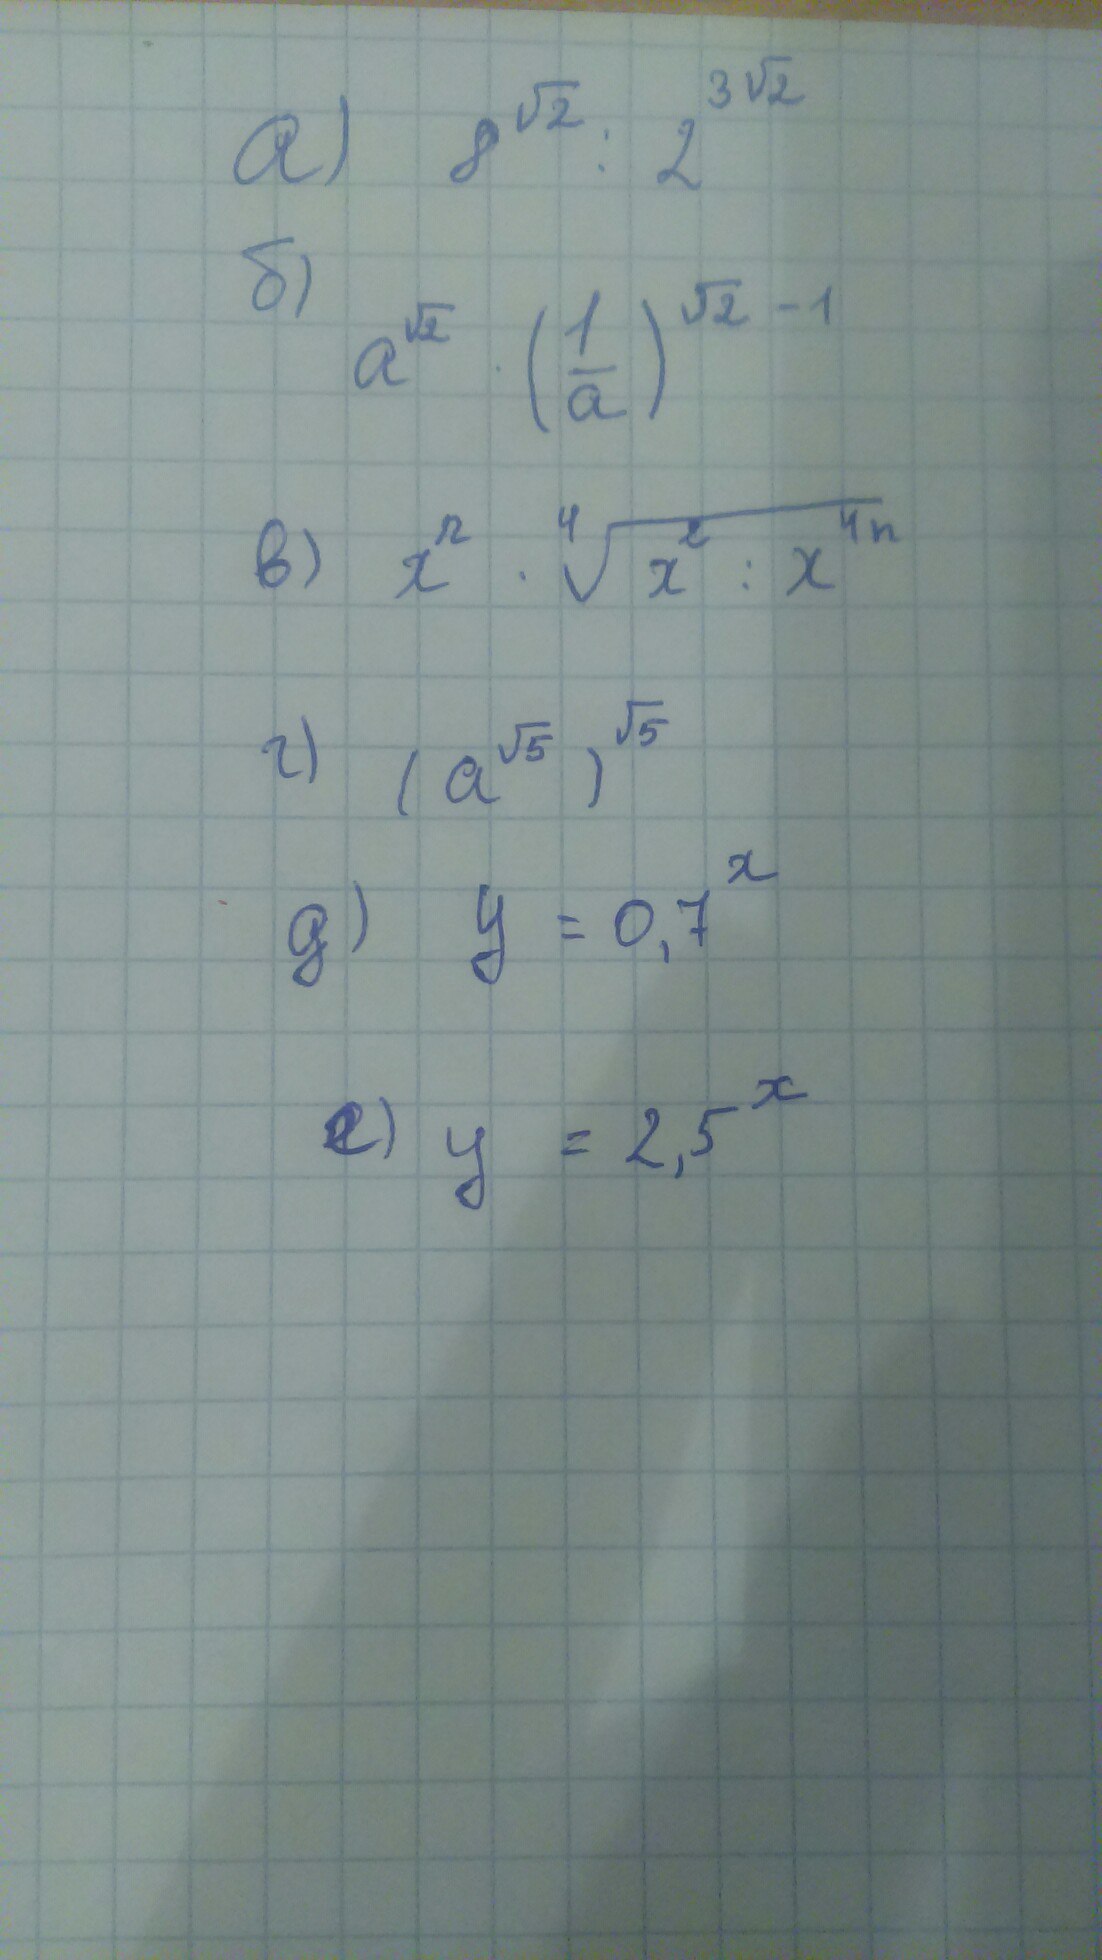 а) 8^√2 : 2^3√2
б)
a^√2 · (1/a)^√2 - 1
в) x^n · ⁴√x² : x^4n
г) (a^√5)^√5
д) y = 0,7^x
е) y = 2,5^x